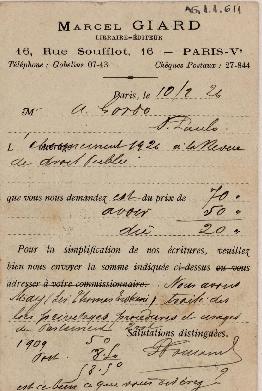 AG.1.1.611
MARCEL GIARD
LIBRAIRE-ÉDITEUR
16, Rue Soufflot, 16 — PARIS-Vᵉ
Téléphone : Gobelins 07-43 Chèques Postaux : 27-844
Paris, le 10/2 26
M A. Gordo
S. Paulo
L' 1926 à la Revue
de droit public
que vous nous demandez est du prix de 70 "
avoir 50 "
dû 20 "
Pour la simplification de nos écritures, veuillez
bien nous envoyer la somme indiquée ci-dessus ou vous
adresser à votre commissionnaire. Nous avons
traité des
lois, privilèges, procédures et usages
du Parlement
Salutations distinguées.
1909 50
Port 8.50
58.50
est ce bien ce que vous désirez ?